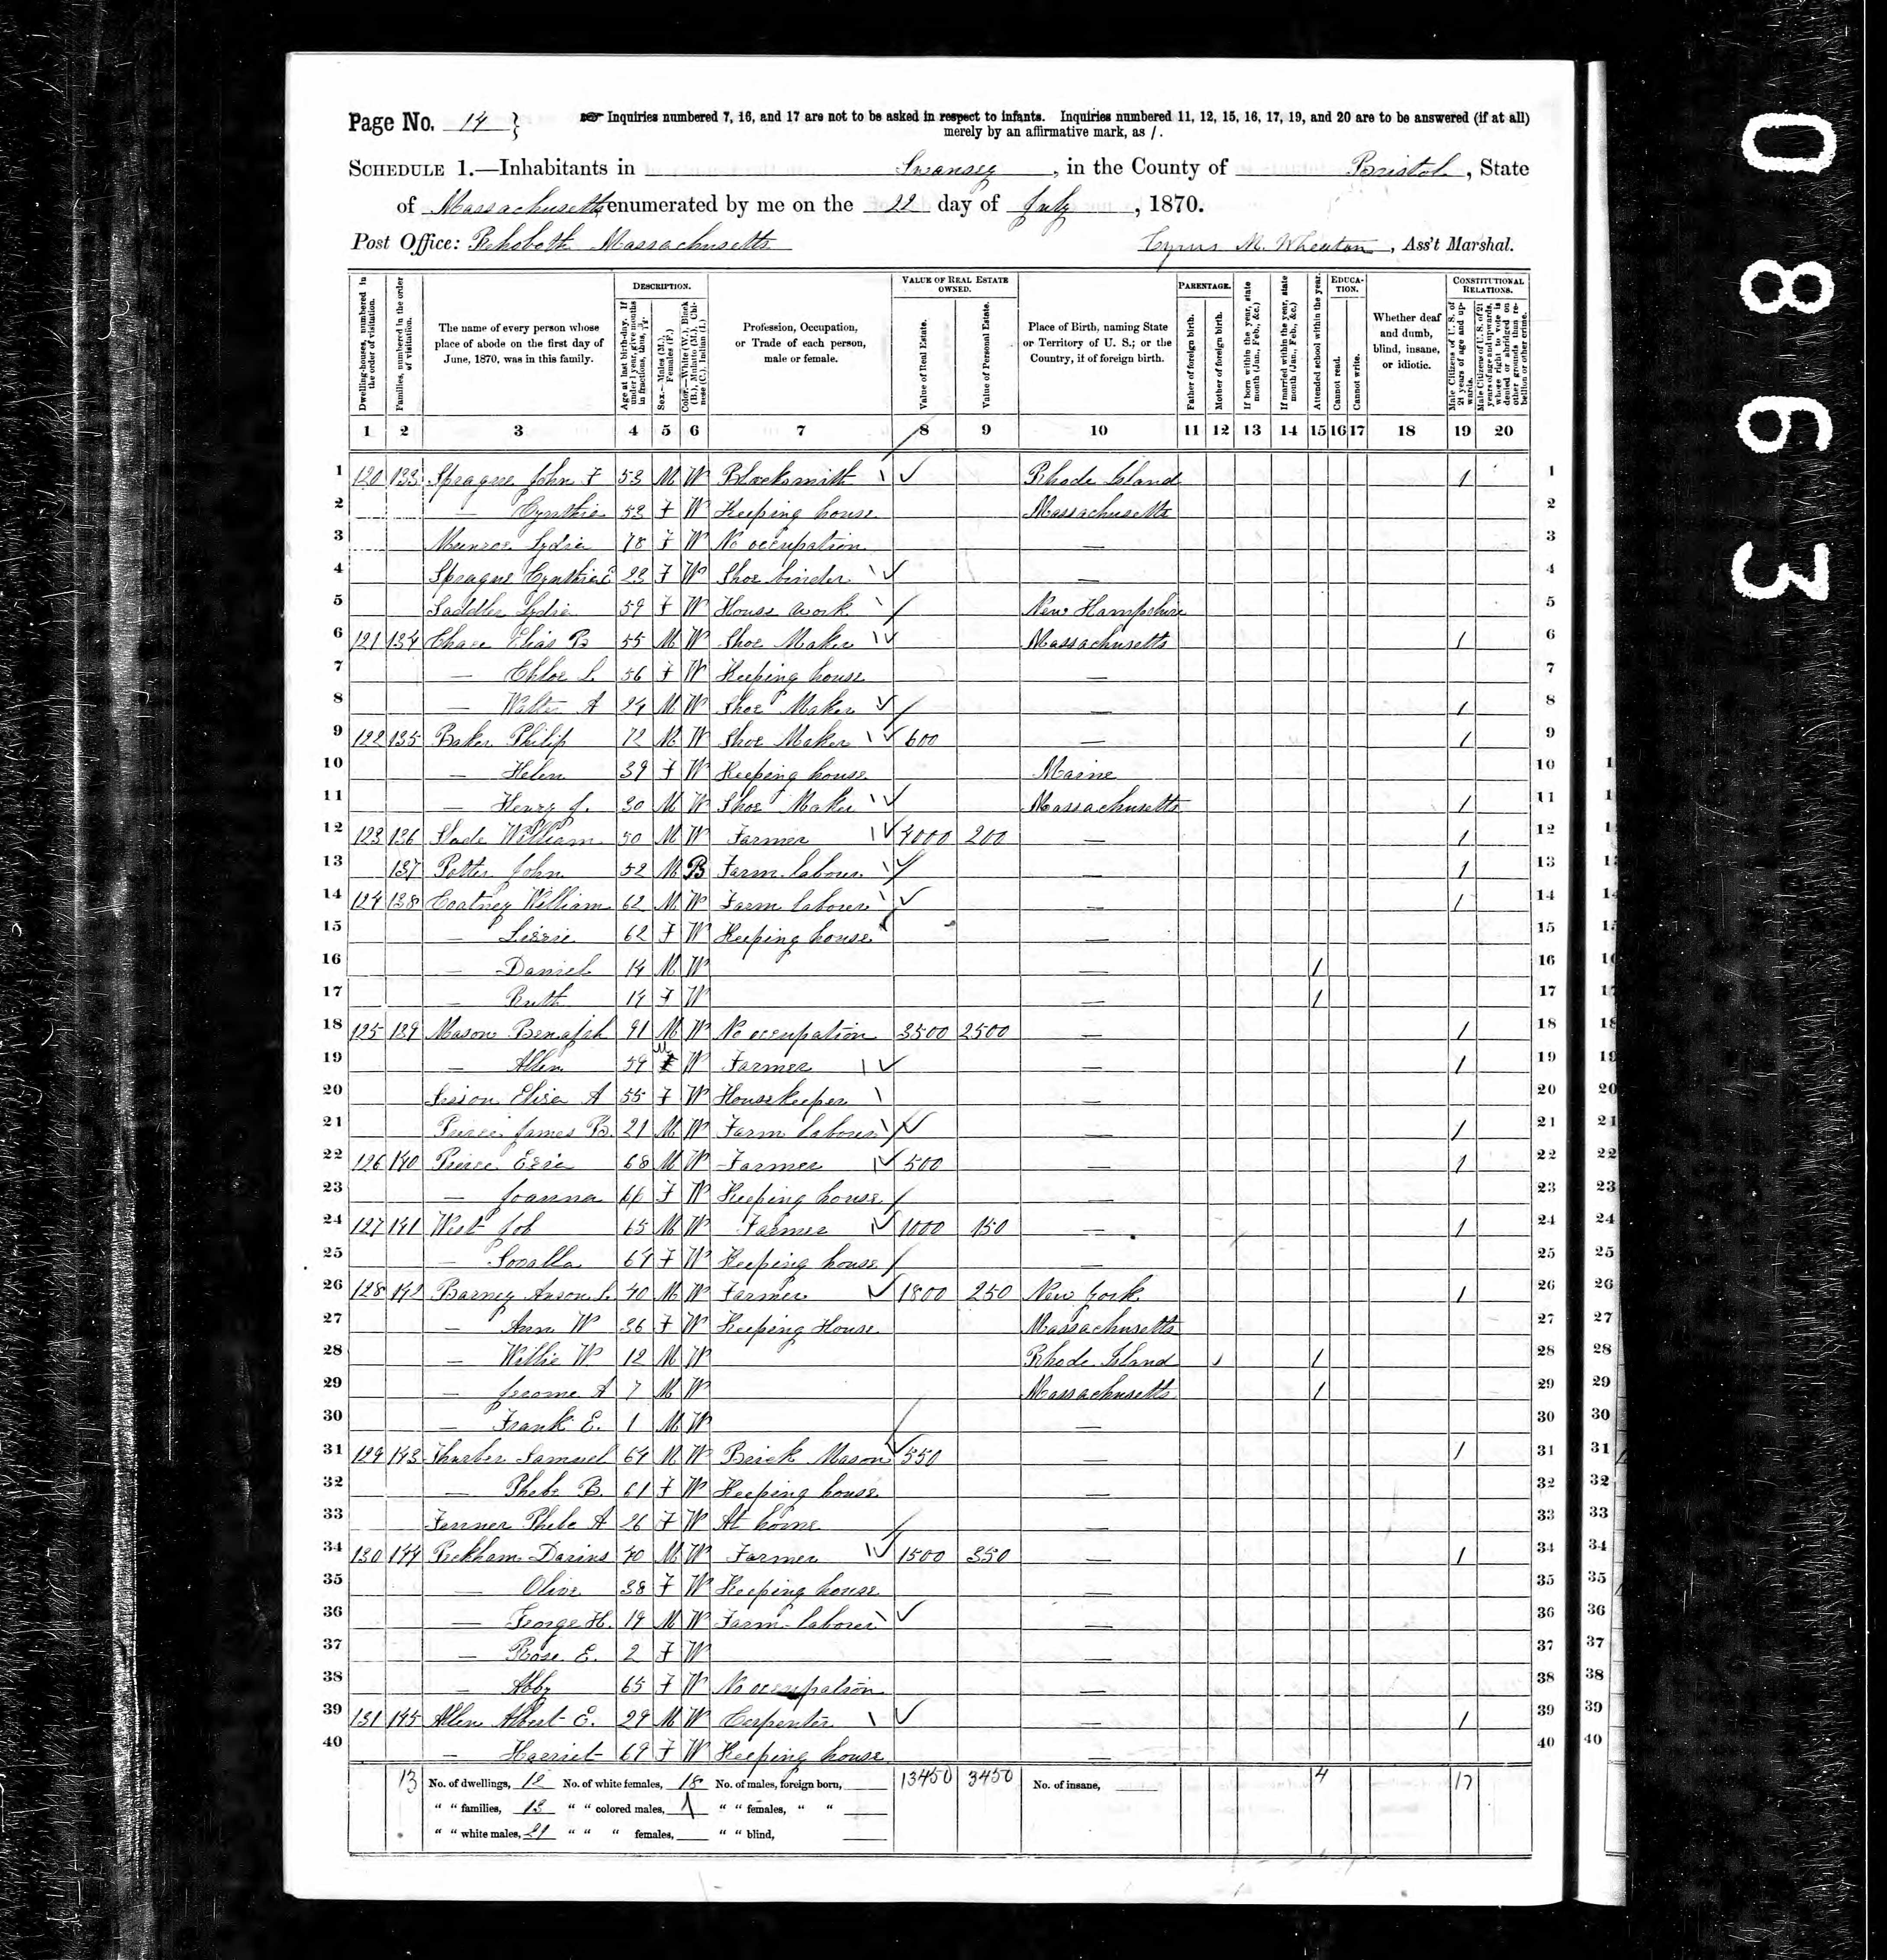 Page No. 14 }
Inquiries numbered 7, 16, and 17 are not to be asked in respect to infants. Inquiries numbered 11, 12, 15, 16, 17, 19, and 20 are to be answered (if at all)
merely by an affirmative mark, as /.
SCHEDULE 1.—Inhabitants in Swansey, in the County of Bristol, State
of Massachusetts enumerated by me on the 22 day of July, 1870.
Post Office: Rehoboth Massachusetts Cyrus M. Wheaton, Ass't Marshal.
Dwelling-houses, numbered in the order of visitation.
Families, numbered in the order of visitation.
The name of every person whose place of abode on the first day of June, 1870, was in this family.
DESCRIPTION.
Age at last birth-day. If under 1 year, give months in fractions, thus, 3/12.
Sex.—Males (M.), Females (F.)
Color.—White (W.), Black (B.), Mulatto (M.), Chinese (C.), Indian (I.)
Profession, Occupation, or Trade of each person, male or female.
VALUE OF REAL ESTATE OWNED.
Value of Real Estate.
Value of Personal Estate.
Place of Birth, naming State or Territory of U. S.; or the Country, if of foreign birth.
PARENTAGE.
Father of foreign birth.
Mother of foreign birth.
If born within the year, state month (Jan., Feb., &c.)
If married within the year, state month (Jan., Feb., &c.)
Attended school within the year.
EDUCATION.
Cannot read.
Cannot write.
Whether deaf and dumb, blind, insane, or idiotic.
CONSTITUTIONAL RELATIONS.
Male Citizens of U. S. of 21 years of age and upwards.
Male Citizens of U. S. of 21 years of age and upwards, whose right to vote is denied or abridged on other grounds than rebellion or other crime.
1 2 3 4 5 6 7 8 9 10 11 12 13 14 15 16 17 18 19 20
1 120 133 Sprague John F 53 M W Blacksmith Rhode Island / 1
2 — Cynthia 53 F W Keeping house Massachusetts 2
3 Munroe Lydia 78 F W No occupation — 3
4 Sprague Cynthia E 23 F W Shoe binder — 4
5 Saddler Lydia 59 F W House work New Hampshire 5
6 121 134 Chace Elias B 55 M W Shoe Maker Massachusetts / 6
7 — Chloe L. 56 F W Keeping house — 7
8 — Walter A 24 M W Shoe Maker — / 8
9 122 135 Baker Philip 72 M W Shoe Maker 600 — / 9
10 — Helen 39 F W Keeping house Maine 10
11 — Henry J. 30 M W Shoe Maker Massachusetts / 11
12 123 136 Slade William 50 M W Farmer 4000 200 — / 12
13 137 Potter John 52 M B Farm labour — / 13
14 124 138 Coatney William 62 M W Farm laborer — / 14
15 — Lizzie 62 F W Keeping house — 15
16 — Daniel 14 M W — / 16
17 — Ruth 14 F W — / 17
18 125 139 Mason Benajah 91 M W No occupation 3500 2500 — / 18
19 — Allen 59 M W Farmer — / 19
20 Sisson Eliza A 55 F W Housekeeper — 20
21 Peirce James B. 21 M W Farm laborer — / 21
22 126 140 Pierce Ezra 68 M W Farmer 500 — / 22
23 — Joanna 66 F W Keeping house — 23
24 127 141 West Job 65 M W Farmer 1000 150 — / 24
25 — 64 F W Keeping house — 25
26 128 142 Barney Anson L. 40 M W Farmer 1800 250 New York / 26
27 — Ann W 36 F W Keeping House Massachusetts 27
28 — Willie W 12 M W Rhode Island / 28
29 — Jerome A 7 M W Massachusetts / 29
30 — Frank E. 1 M W — 30
31 129 143 Thurber Samuel 64 M W Brick Mason 550 — / 31
32 — Phebe B. 61 F W Keeping house — 32
33 Fenner Phebe A 26 F W At home — 33
34 130 144 Peckham Darius 40 M W Farmer 1500 350 — / 34
35 — Olive 38 F W Keeping house — 35
36 — George H. 19 M W Farm laborer — 36
37 — Rose E. 2 F W — 37
38 — Abby 65 F W No occupation — 38
39 131 145 Allen Albert E. 29 M W Carpenter — / 39
40 — Harriet 69 F W Keeping house — 40
13 No. of dwellings, 12 No. of white females, 18 No. of males, foreign born, 13450 3450 No. of insane, 4 17
" " families, 13 " " colored males, 1 " " females, " "
" " white males, 21 " " " females, " " blind,
0863